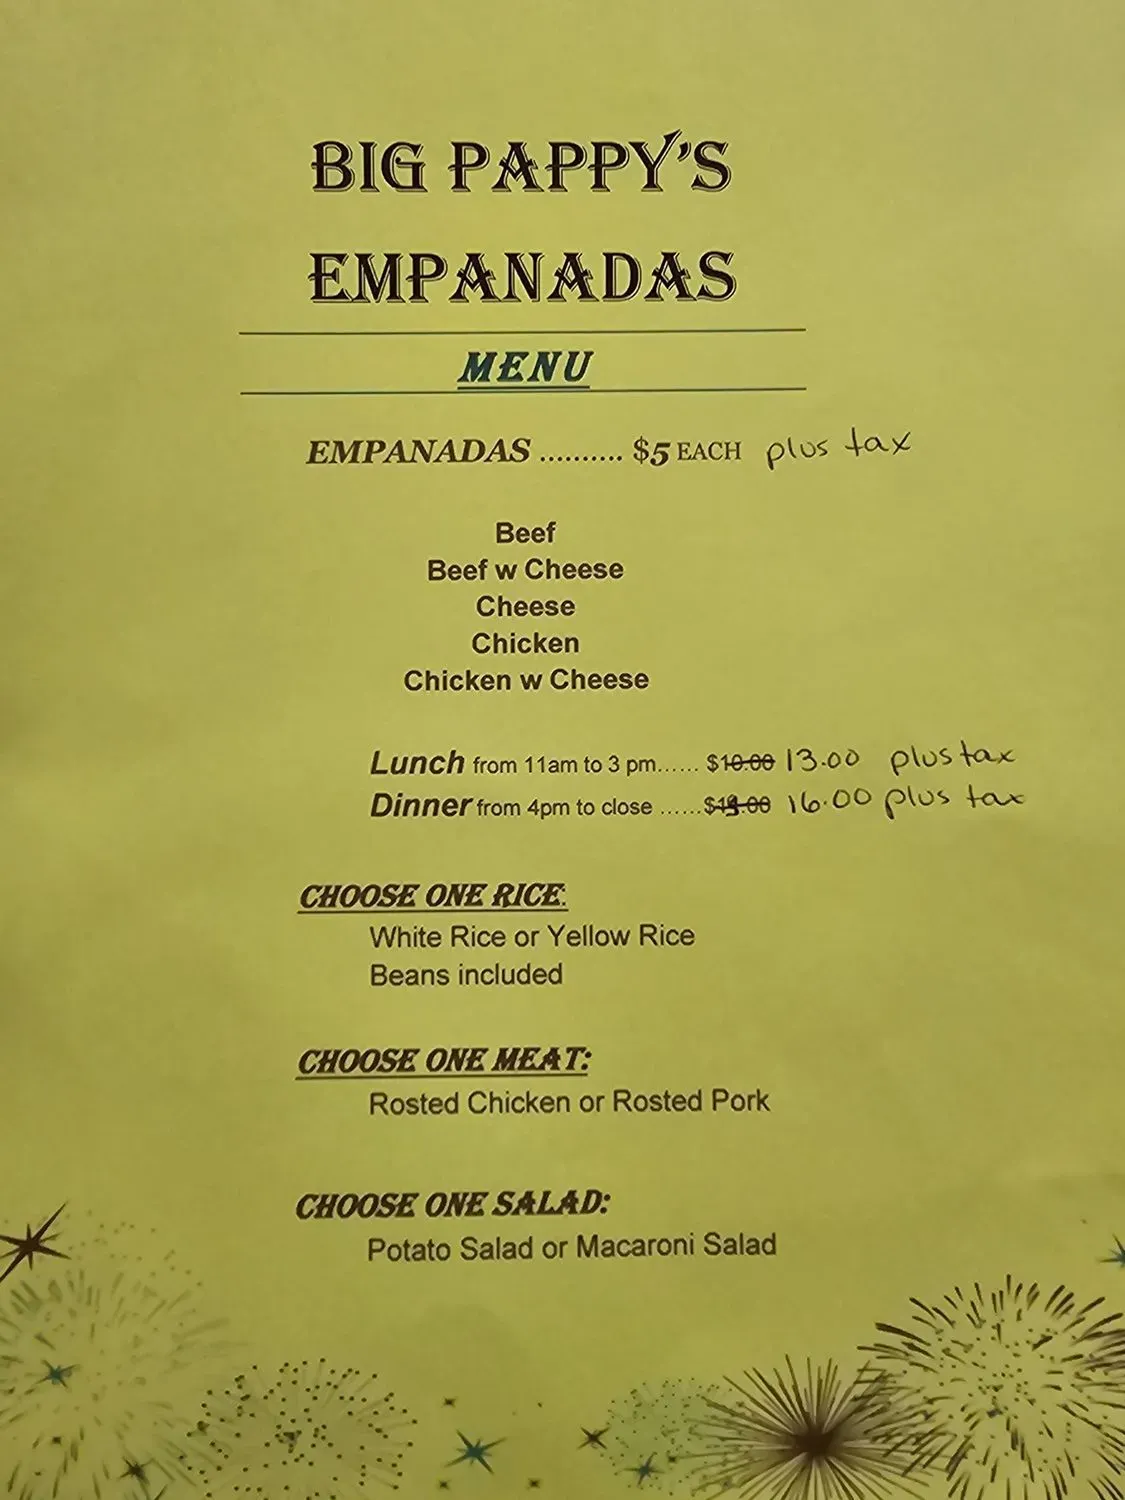 BIG PAPPY'S
EMPANADAS
MENU
EMPANADAS .......... $5 EACH plus tax
Beef
Beef w Cheese
Cheese
Chicken
Chicken w Cheese
Lunch from 11am to 3 pm...... $10.00 13.00 plus tax
Dinner from 4pm to close ......$ 16.00 plus tax
CHOOSE ONE RICE:
White Rice or Yellow Rice
Beans included
CHOOSE ONE MEAT:
Rosted Chicken or Rosted Pork
CHOOSE ONE SALAD:
Potato Salad or Macaroni Salad